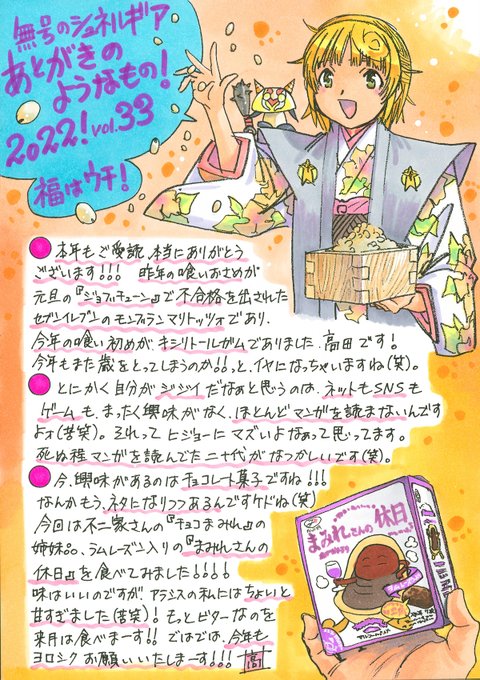 無号のシュネルギア
あとがきの
ようなもの!
2022! vol.33
福はウチ!
本年もご愛読、本当にありがとう
ございます!!! 昨年の喰いおさめが
元旦の『ジョブチューン』で不合格を出された
セブンイレブンのモンブランマリトッツォであり、
今年の喰い初めが、キシリトールガムでありました、高田です!
今年もまた歳をとってしまうのか!!っと、イヤになっちゃいますね(笑)。
とにかく自分がジジイだなぁと思うのは、ネットもSNSも
ゲームも、まったく興味がなく、ほとんどマンガを読まないんです
よォ(苦笑)。それってヒジョーにマズいよなぁって思ってます。
死ぬ程マンガを読んでた二十代がなつかしいです(笑)。
今、興味があるのはチョコレート菓子ですね!!!
なんかもう、ネタになりつつあるんですケドね(笑)
今回は不二家さんの『チョコまみれ』の
姉妹品、ラムレーズン入りの『まみれさんの
休日』を食べてみました!!!!
味はいいのですが、アラシスの私にはちょいと
甘すぎました(苦笑)! もっとビターなのを
来月は食べまーす!! ではでは、今年も
ヨロシクお願いいたしまーす!!! 高
まみれさんの
休日